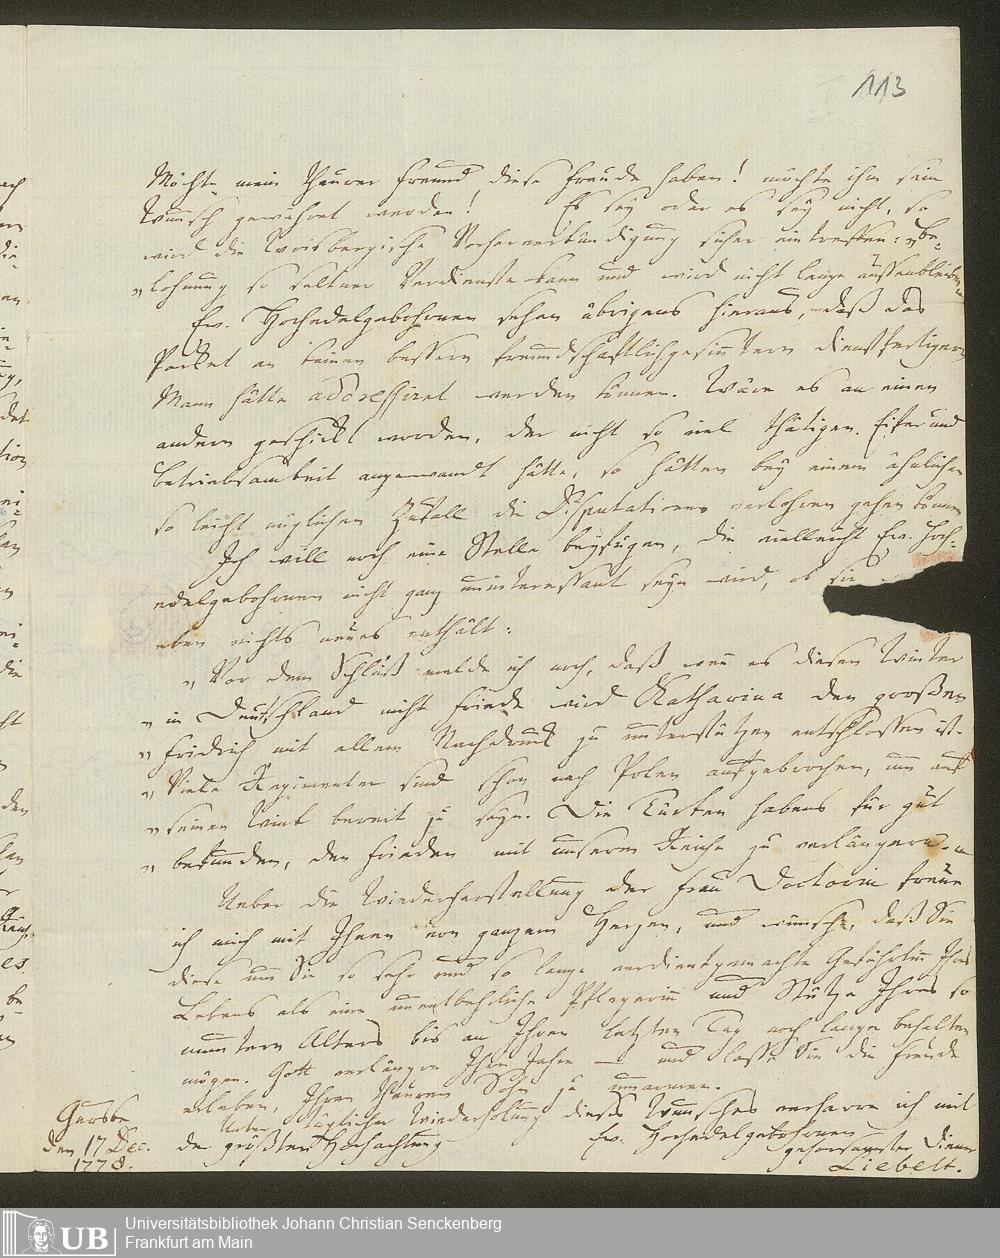 113
Möchte mein theurer Freund diese Freude haben! möchte ihm sein
Wunsch gewähret werden! Es sey oder es sey nicht, so
wird die Vorherverkündigung sicher eintreffen: „Be-
„lohnung so seltner Verdienste kann und wird nicht lange aussenbleiben.„
Ew. Hochedelgebohrnen sehen übrigens hieraus, daß das
Packet an keinen bessern freundschaftlichgesinntern dienstfertigern
Mann hätte addressiret werden können. Wäre es an einen
andern geschickt worden, der nicht so viel thätigen Eifer und
Betriebsamkeit angewandt hätte, so hätten bey einem ähnlichen
so leicht möglichen Zufall die Disputationes verlohren gehen können
Ich will noch eine Stelle beyfügen, die vielleicht Ew. Hoch-
edelgebohrnen nicht ganz uninteressant seyn wird, ob sie
eben nichts neues enthält:
„Vor dem Schluß melde ich noch, daß wenn es diesen Winter
„in Deutschland nicht Friede wird Katharina den großen
„Fridrich mit allem Nachdruck zu unterstützen entschlossen ist.
„Viele Regimenter sind schon nach Polen aufgebrochen, um auf
„seinen Wink bereit zu seyn. Die Türken habens für gut
„befunden, den Frieden mit unserm Reiche zu verlängern.„
Ueber die Wiederherstellung der Frau Doctorin freue
ich mich mit Ihnen von ganzem Herzen, und wünsche, daß Sie
diese um Sie so sehr und so lange verdientgemachte Gefährtinn Ihres
Lebens als eine unentbehrliche Pflegerin und Stütze Ihres so
muntern Alters bis an Ihren letzten Tag noch lange behalten
mögen. Gott verlängre Ihre Jahre – und lasse Sie die Freude
erleben, Ihren theuren Sohn zu umarmen.
Unter täglicher Wiederholung dieses Wunsches verharre ich mit
der größten Hochachtung
Ew. Hochedelgebohrnen
gehorsamster Diener
Liebelt.
den 17 Dec.
1778.
UB
Universitätsbibliothek Johann Christian Senckenberg
Frankfurt am Main